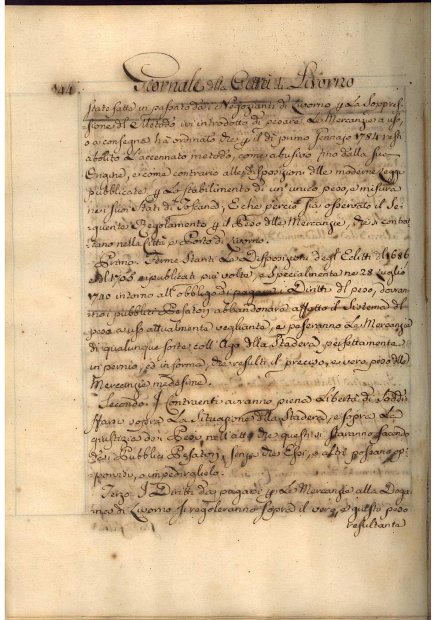 44
Giornale della Città di Livorno
state fatte in passato da i Negozianti di Livorno p la Soppres-
sione del Metodo ivi introdotto di pesare le Mercanzie a uso,
o a consegna ha ordinato che p il dì primo Gennaio 1784 resti
abolito l'accennato metodo, come abusivo fino dalla sua
Origine, e come contrario alle disposizioni delle moderne Leggi
pubblicate p lo stabilimento di un unico peso, e misura
nei suoi Stati di Toscana, E che perciò sia osservato il Se-
guente Regolamento p il Peso delle Mercanzie, che si contrat-
tano nella Città e Porto di Livorno.
Primo. Ferme stanti le Disposizioni degl'Editti del 1686
e del 1705 ripubblicati più volte, e Specialmente ne 28 Luglio
1740 intorno all'obbligo di pagare i Diritti del peso, dovran-
no i pubblici Pesatori abbandonare affatto il Sistema del
peso a uso attualmente vegliante, e peseranno le Mercanzie
di qualunque sorte coll'Ago della Stadera perfettamente
in pernio, ed in forma, che resulti il preciso, e vero peso delle
Mercanzie medesime.
Secondo. I Contraenti avranno piena Libertà di Soddis-
farsi sopra la Situazione della Stadera, e sopra la
giustizia dei Pesi, nell'atto che questi si staranno facendo
dei Pubblici Pesatori, senza che Essi, o altri possano op-
ponersi, o impedirglielo.
Terzo. I Diritti da pagarsi p le Mercanzie alla Doga-
na di Livorno si regoleranno sopra il vero, e giusto peso
resultante